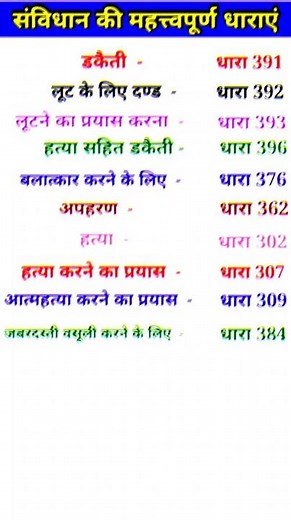 संविधान की महत्त्वपूर्ण धाराएं
डकैती - धारा 391
लूट के लिए दण्ड - धारा 392
लूटने का प्रयास करना - धारा 393
हत्या सहित डकैती - धारा 396
बलात्कार करने के लिए - धारा 376
अपहरण - धारा 362
हत्या - धारा 302
हत्या करने का प्रयास - धारा 307
आत्महत्या करने का प्रयास - धारा 309
जबरदस्ती वसूली करने के लिए - धारा 384